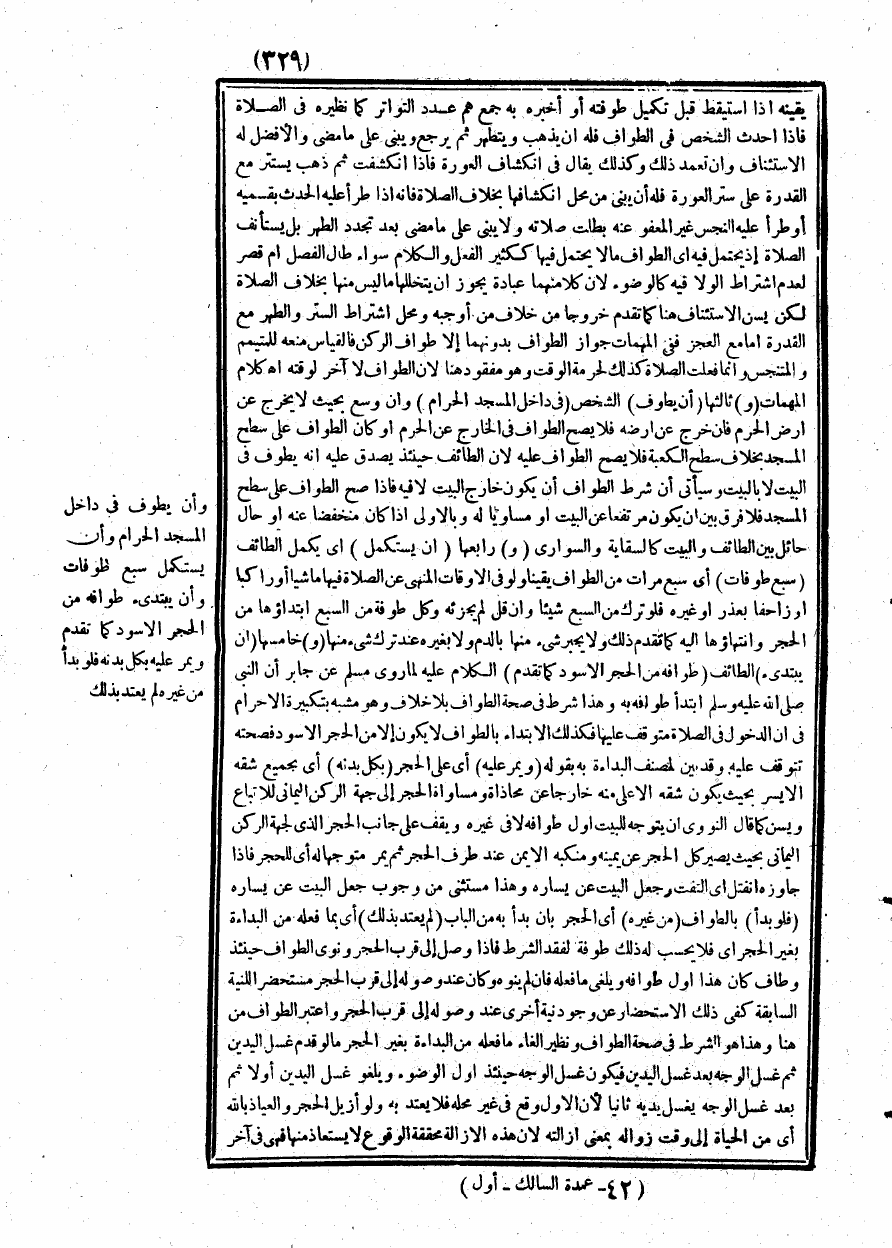 (٣٢٩)
يقينه اذا استيقظ قبل تكميل طوقته أو أخبره به جمع هم عدد التواتر كما نظيره فى الصلاة
فاذا احدث الشخص فى الطواف فله ان يذهب ويتطهر ثم يرجع ويبنى على مامضى والأفضل له
الاستئناف وان تعمد ذلك وكذلك يقال فى انكشاف العورة فاذا انكشفت ثم ذهب يستتر مع
القدرة على ستر العورة فله أن يبنى من محل انكشافها بخلاف الصلاة فانه اذا طرأ عليه الحدث بقسميه
أو طرأ عليه النجس غير المعفو عنه بطلت صلاته ولا يبنى على مامضى بعد تجدد الطهر بل يستأنف
الصلاة إذ يحتمل فيه اى الطواف مالا يحتمل فيها ككثير الفعل والكلام سواء طال الفصل ام قصر
لعدم اشتراط الولا فيه كالوضوء لان كلا منهما عبادة يجوز ان يتخللها ما ليس منها بخلاف الصلاة
لكن يسن الاستئناف هنا كما تقدم خروجا من خلاف من أوجبه ومحل اشتراط الستر والطهر مع
القدرة امامع العجز ففى المهمات جواز الطواف بدونهما إلا طواف الركن فالقياس منعه للمتيمم
والمتنجس وانما فعلت الصلاة كذلك لحرمة الوقت وهو مفقود هنا لان الطواف لا آخر لوقته اه كلام
المهمات (و) ثالثها (أن يطوف) الشخص (فى داخل المسجد الحرام) وان وسع بحيث لا يخرج عن
ارض الحرم فان خرج عن ارضه فلا يصح الطواف فى الخارج عن الحرم او كان الطواف على سطح
المسجد بخلاف سطح الكعبة فلا يصح الطواف عليه لان الطائف حينئذ يصدق عليه انه يطوف فى
البيت لا بالبيت وسيأتى أن شرط الطواف أن يكون خارج البيت لافيه فاذا صح الطواف على سطح
المسجد فلا فرق بين ان يكون مرتفعا عن البيت او مساويا له وبالاولى اذا كان منخفضا عنه او حال
حائل بين الطائف والبيت كالسقاية والسوارى (و) رابعها (ان يستكمل) اى يكمل الطائف
(سبع طوفات) أى سبع مرات من الطواف يقينا ولو فى الاوقات المنهى عن الصلاة فيها ماشيا أو راكبا
او زاحفا بعذر او غيره فلو ترك من السبع شيئا وان قل لم يجزئه وكل طوفة من السبع ابتداؤها من
الحجر وانتهاؤها اليه كما تقدم ذلك ولا يجبر شىء منها بالدم ولا بغيره عند ترك شىء منها (و) خامسها (ان
يبتدىء) الطائف (طوافه من الحجر الاسود كما تقدم) الكلام عليه لما روى مسلم عن جابر أن النبى
صلى الله عليه وسلم ابتدأ طوافه به وهذا شرط فى صحة الطواف بلا خلاف وهو مشبه بتكبيرة الاحرام
فى ان الدخول فى الصلاة متوقف عليها فكذلك الابتداء بالطواف لا يكون إلا من الحجر الاسود فصحته
تتوقف عليه وقد بين المصنف البداءة به بقوله (ويمر عليه) أى على الحجر (بكل بدنه) أى بجميع شقه
الايسر بحيث يكون شقه الاعلى منه خارجا عن محاذاة ومساواة الحجر إلى جهة الركن اليمانى للاتباع
ويسن كما قال النووى ان يتوجه للبيت اول طوافه لا فى غيره ويقف على جانب الحجر الذى لجهة الركن
اليمانى بحيث يصير كل الحجر عن يمينه ومنكبه الايمن عند طرف الحجر ثم يمر متوجها له أى للحجر فاذا
جاوزه انفتل اى التفت وجعل البيت عن يساره وهذا مستثنى من وجوب جعل البيت عن يساره
(فلو بدأ) بالطواف (من غيره) أى الحجر بان بدأ به من الباب (لم يعتد بذلك) أى بما فعله من البداءة
بغير الحجر اى فلا يحسب له ذلك طوفة لفقد الشرط فاذا وصل إلى قرب الحجر ونوى الطواف حينئذ
وطاف كان هذا اول طوافه ويلغى ما فعله فان لم ينوه وكان عند وصوله إلى قرب الحجر مستحضر اللنية
السابقة كفى ذلك الاستحضار عن وجود نية أخرى عند وصوله إلى قرب الحجر واعتبر الطواف من
هنا وهذا هو الشرط فى صحة الطواف ونظير الغاء ما فعله من البداءة بغير الحجر مالو قدم غسل اليدين
ثم غسل الوجه بعد غسل اليدين فيكون غسل الوجه حينئذ اول الوضوء ويلغو غسل اليدين أولا ثم
بعد غسل الوجه يغسل يديه ثانيا لأن الاول وقع فى غير محله فلا يعتد به ولو أزيل الحجر والعياذ بالله
أى من الحياة إلى وقت زواله بمعنى ازالته لان هذه الازالة محققة الوقوع لا يستعاذ منها فهى فى آخر
وأن يطوف فى داخل
المسجد الحرام وأن
يستكمل سبع طوفات
وأن يبتدىء طوافه من
الحجر الاسود كما تقدم
ويمر عليه بكل بدنه فلو بدأ
من غيره لم يعتد بذلك
(٤٢ - عمدة السالك - أول)